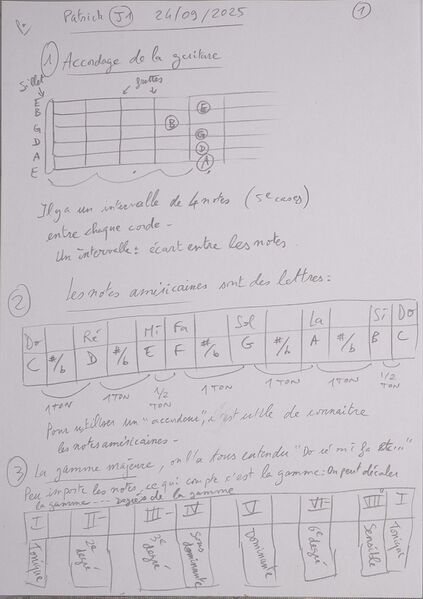 Patrick J1 24/09/2025 1
1) Accordage de la guitare
Sillet frettes
E
B
G
D
A
E
E
B
G
D
A
Il y a un intervalle de 4 notes (5e cases)
entre chaque corde -
Un intervalle : écart entre les notes.
2 Les notes américaines sont des lettres :
Do Ré Mi Fa Sol La Si Do
C #/b D #/b E F #/b G #/b A #/b B C
1 TON 1 TON 1/2 TON 1 TON 1 TON 1 TON 1/2 TON
Pour utiliser un "accordeur", c'est utile de connaitre
les notes américaines -
3 La gamme majeure, on l'a tous entendu "Do ré mi fa etc..."
Peu importe les notes, ce qui compte c'est la gamme : On peut décaler
la gamme --- degrés de la gamme
I II- III- IV V VI- VII I
Tonique 2e degré 3e degré Sous dominante Dominante 6e degré Sensible Tonique